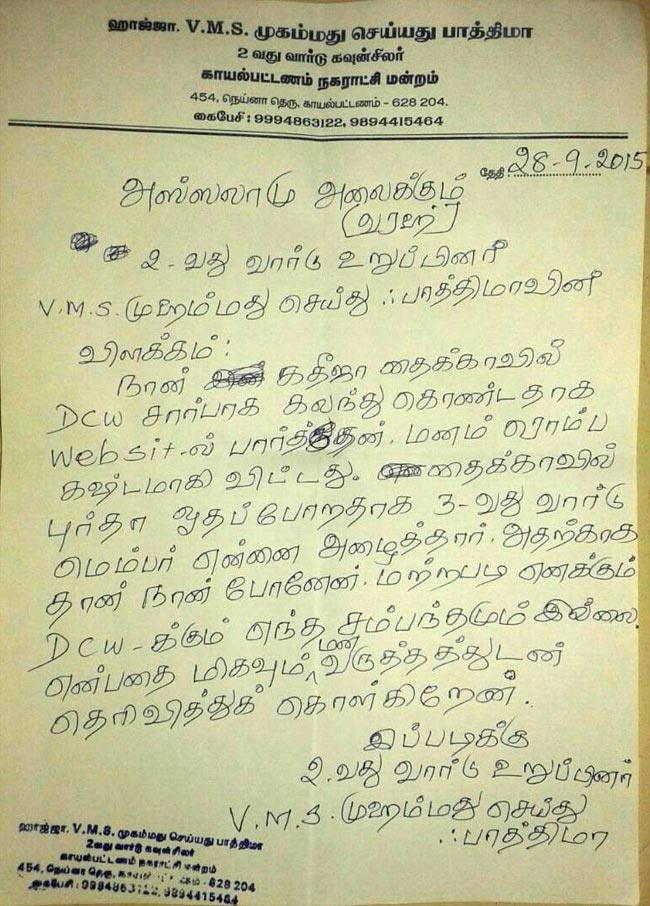 ஹாஜ்ஜா. V.M.S. முகம்மது செய்யது பாத்திமா
2 வது வார்டு கவுன்சிலர்
காயல்பட்டணம் நகராட்சி மன்றம்
454, நெய்னா தெரு, காயல்பட்டணம் - 628 204.
கைபேசி : 9994863122, 9894415464
தேதி: 28-9-2015
அஸ்ஸலாமு அலைக்கும்
(வரஹ்)
2-வது வார்டு உறுப்பினர்
V.M.S. முஹம்மது செய்து ஃபாத்திமாவின்
விளக்கம்:
நான் கதீஜா தைக்காவில்
DCW சார்பாக கலந்து கொண்டதாக
Websit-ல் பார்த்தேன். மனம் ரொம்ப
கஷ்டமாகி விட்டது. தைக்காவில்
புர்தா ஓதப்போறதாக 3-வது வார்டு
மெம்பர் என்னை அழைத்தார். அதற்காக
தான் நான் போனேன். மற்றபடி எனக்கும்
DCW-க்கும் எந்த சம்பந்தமும் இல்லை.
என்பதை மிகவும் மன வருத்தத்துடன்
தெரிவித்துக் கொள்கிறேன்.
இப்படிக்கு
2.வது வார்டு உறுப்பினர்
V.M.S. முஹம்மது செய்து
ஃபாத்திமா
ஹாஜ்ஜா. V.M.S. முகம்மது செய்யது பாத்திமா
2வது வார்டு கவுன்சிலர்
காயல்பட்டணம் நகராட்சி மன்றம்
454, நெய்னா தெரு, - 628 204
கைபேசி : 9994863122, 9894415464